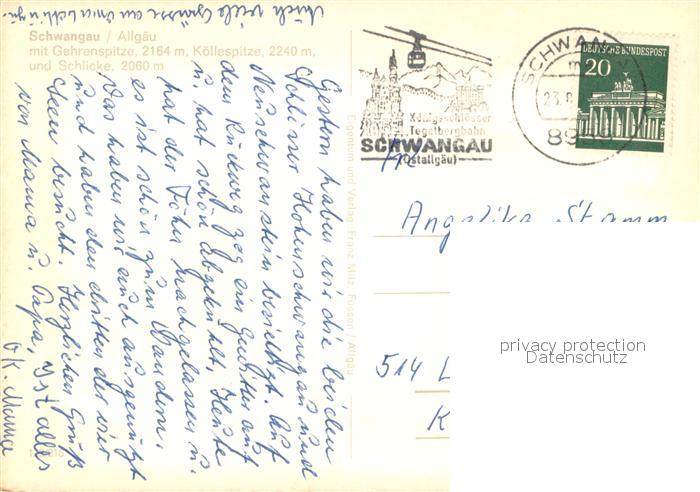 Auch viele Grüsse an Oma
Schwangau / Allgäu
mit Gehrenspitze, 2164 m, Köllespitze, 2240 m,
und Schlicke, 2060 m
Gestern haben wir die beiden
Schlösser Hohenschwangau und
Neuschwanstein besichtigt. Auf
dem Rückweg zog ein Gewitter auf
u. hat schön abgekühlt. Heute
hat der Föhn nachgelassen u.
es ist schön zum Wandern.
Das haben wir auch ausgenutzt
und haben den dritten der vier
Seen besucht. Herzlichen Gruß
von Mama u. Papa, Ist alles
ok. Mama
Eigentum und Verlag Franz Milz, Füssen / Allgäu
Königsschlösser
Tegelbergbahn
SCHWANGAU
(Ostallgäu)
SCHWANGAU
23.8
DEUTSCHE BUNDESPOST
20
Angelika Stamm
514
K
privacy protection
Datenschutz